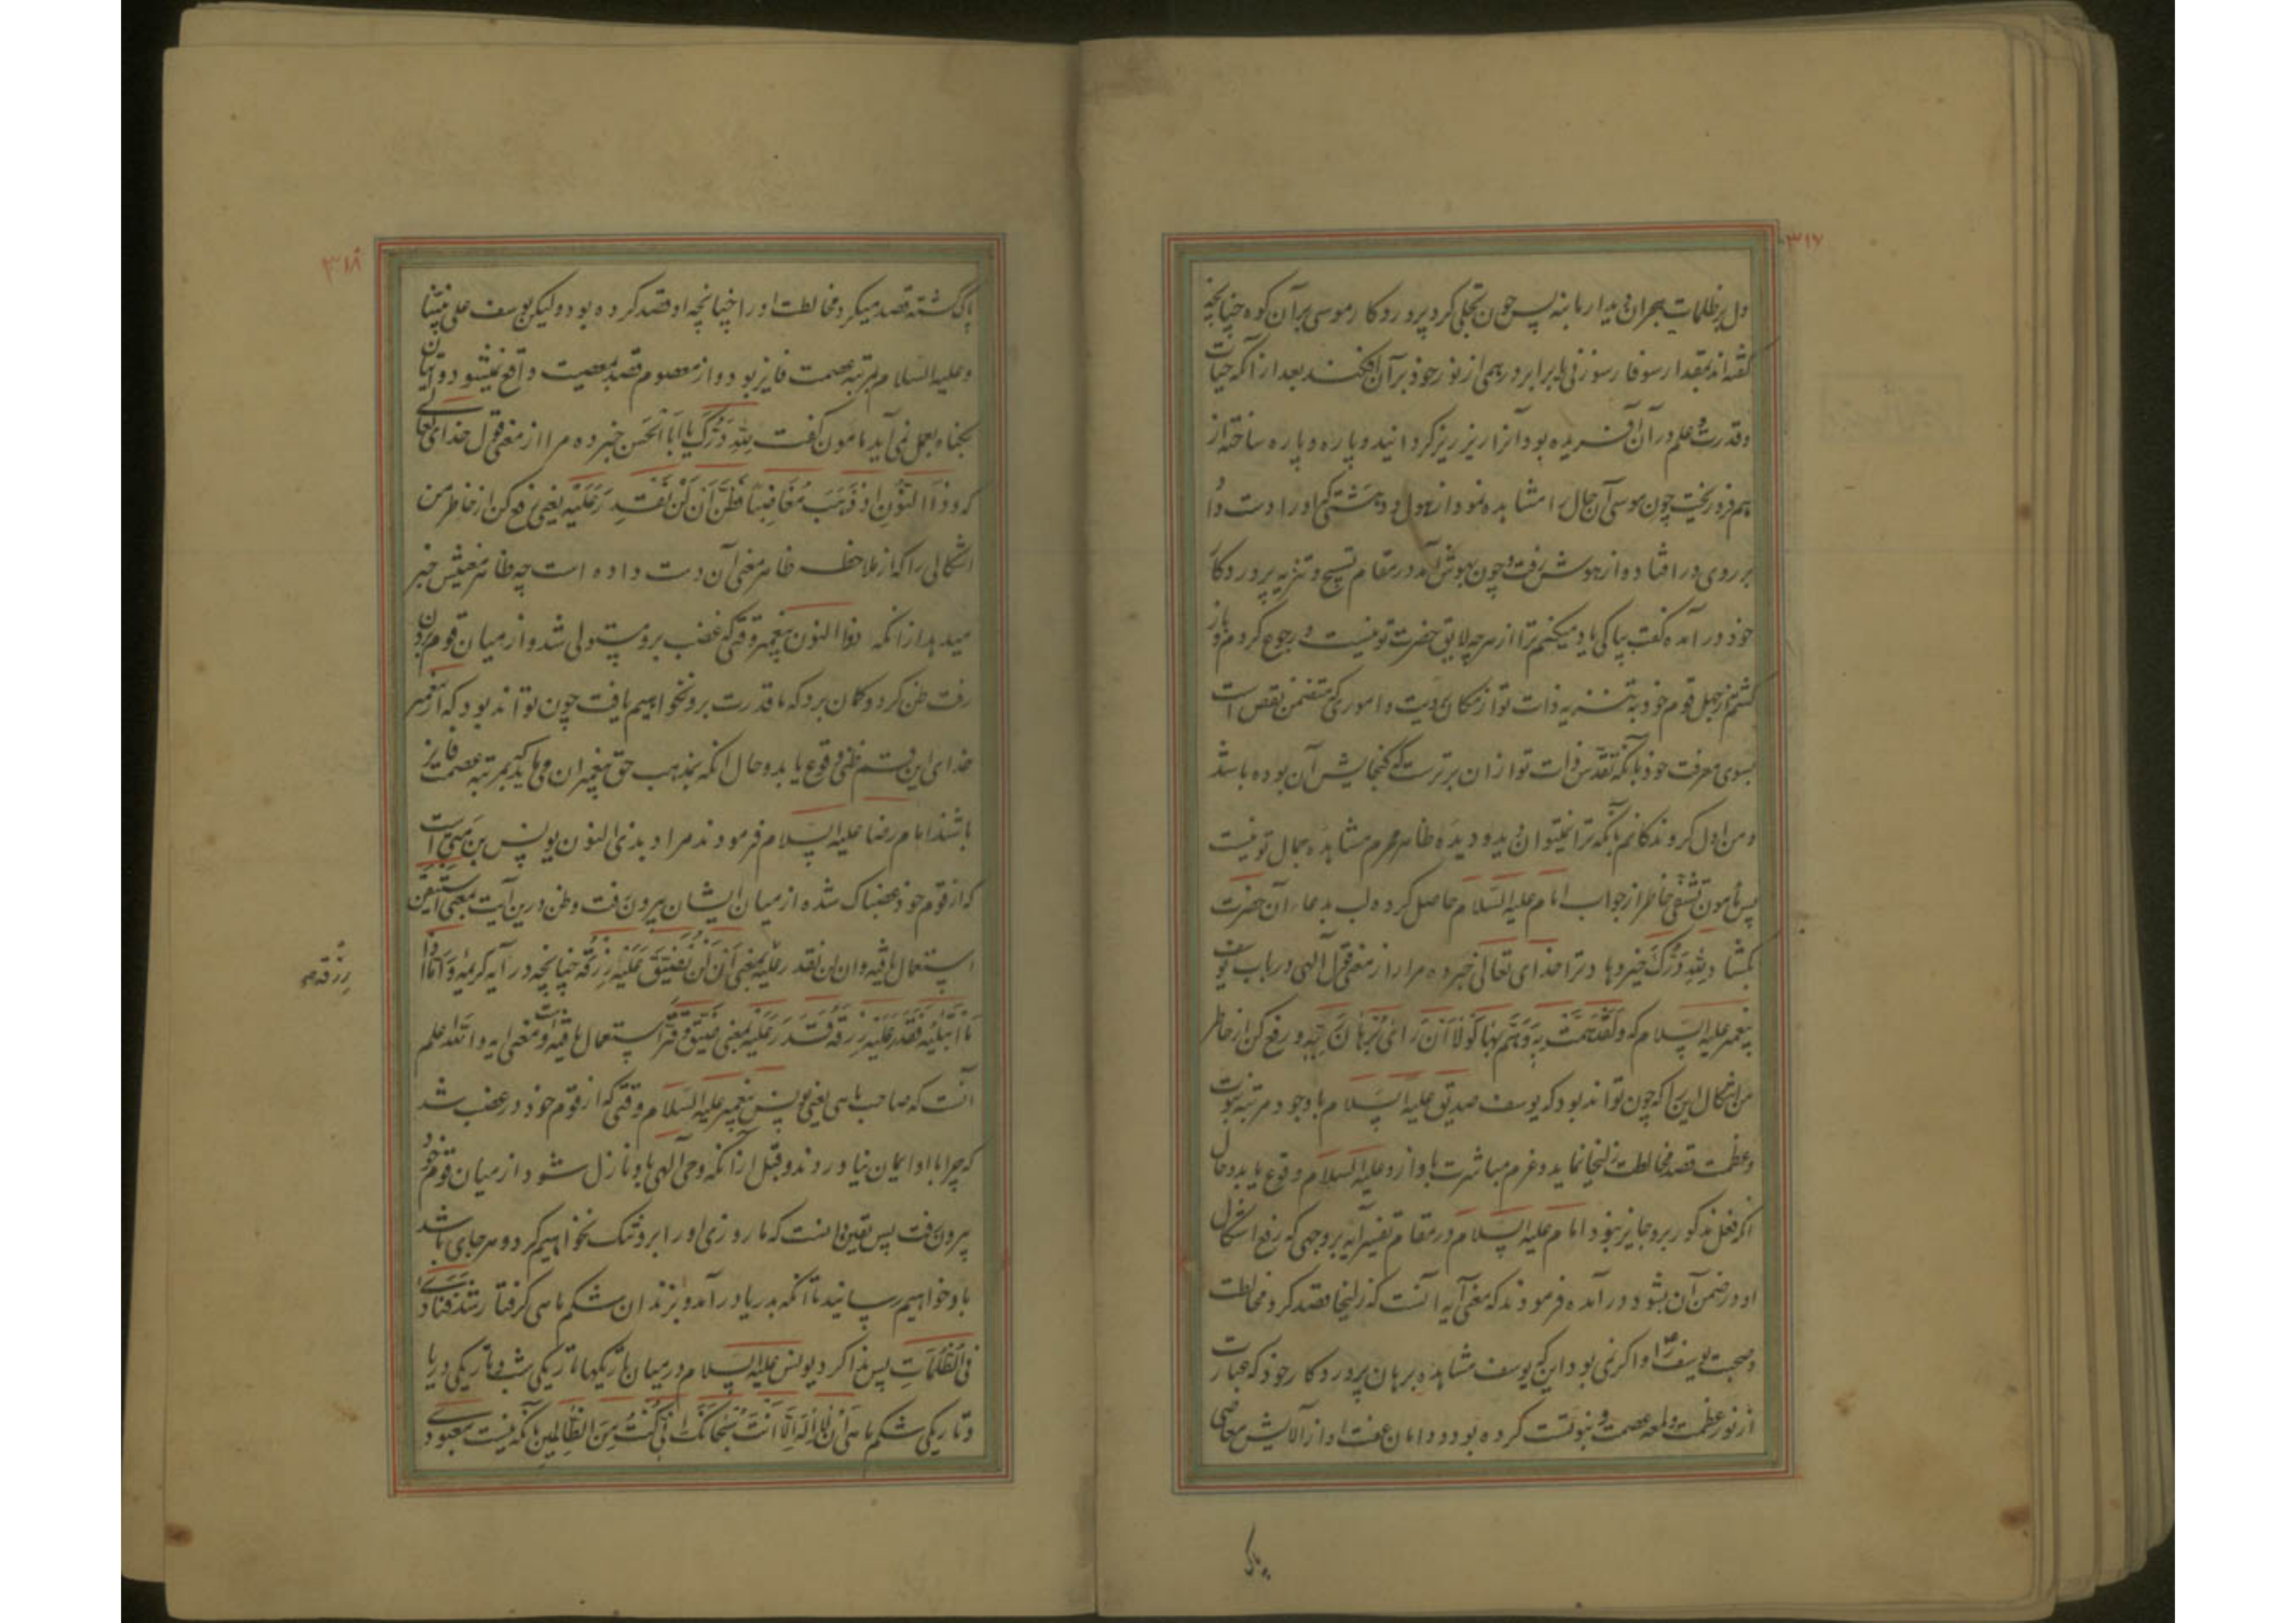 ۳۱۷
دل پر ظلمات هجران دیدار ما بنه پس چون تجلی کرد پروردکار موسی بر آن کوه چنانچه
گفته‌اند بمقدار سوفار سوزنی یا برابر درهمی از نور خود بر آن افکند بعد از آنکه حیات
و قدرت و علم در آن آفریده بود آنرا ریز ریز کردانید و پاره و پاره ساخته از
هم فرو ریخت چون موسی آن حال را مشاهده نمود از هول و دهشتی که او را دست داد
بر روی در افتاد و از هوش رفت و چون بهوش آمد در مقام تسبیح و تنزیه پروردکار
خود در آمده گفت بپاکی یاد میکنم ترا از هر چه لایق حضرت تو نیست و رجوع کردم و باز
کشتم از جهل قوم خود بتنزیه ذات تو از مکان و رویت و اموری که متضمن نقص است
بسوی معرفت خود بآنکه تقدس ذات تو از آن برتر است که گنجایش آن بوده باشد
و من اول کروندکانم بآنکه ترا نمیتوان دید و دیده ظاهر محرم مشاهده جمال تو نیست
پس مأمون تشفی خاطر از جواب امام علیه السلام حاصل کرده لب بدعاء آن حضرت
بکشاد و لله درک خیر دهاد ترا خدای تعالی خبر ده مرا از معنی قول آلهی در باب یوسف
پیغمبر علیه السلام که و لقد همت به و هم بها لولا ان رای برهان ربه و رفع کن از خاطر
من اشکال این را که چون تواند بود که یوسف صدیق علیه السلام با وجود مرتبه نبوت
و عظمت قصد مخالطت زلیخا نماید و عزم مباشرت با او از و علیه السلام وقوع یابد و حال
آنکه فعل مذکور برو جایز نبود امام علیه السلام در مقام تفسیر آیه بر وجهی که رفع اشکال
او در ضمن آن بشود در آمده فرمودند که معنی آیه آنست که زلیخا قصد کرد مخالطت
و صحبت یوسف را و اکر نمی بود این که یوسف مشاهده برهان پروردکار خود که عبارت
از نور عظمت و لمعه عصمت و نبوتست کرده بود و دامان عفت او از آلایش معاصی
پاک
۳۱۸
پاک کشته قصد میکرد مخالطت او را چنانچه او قصد کرده بود و لیکن یوسف علی نبینا
و علیه السلام بمرتبه عصمت فایز بود و از معصوم قصد معصیت واقع نمیشود و اتیان
بکناه بعمل نمی آید مامون کفت لله درک یا ابا الحسن خبر ده مرا از معنی قول خدای تعالی
که و ذا النون اذ ذهب مغاضبا فظن ان لن نقدر علیه یعنی رفع کن از خاطر من
اشکالی را که از ملاحظه ظاهر معنی آن دست داده است چه ظاهر معنیش خبر
میدهد از آنکه ذوا النون پیغمبر وقتی که غضب برو مستولی شد و از میان قوم برون
رفت ظن کرد و کمان برد که ما قدرت برو نخواهیم یافت چون تواند بود که از پیغمبر
خدای این قسم ظنی وقوع یابد و حال آنکه بمذهب حق پیغمبران می باید که بمرتبه عصمت فایز
باشند امام رضا علیه السلام فرمودند مراد بذی النون یونس بن متی است
که از قوم خود غضبناک شده از میان ایشان بیرون رفت و ظن درین آیت بمعنی استیقن
استعمال یافته و ان لن نقدر علیه بمعنی ان لن نضیق علیه رزقه چنانچه در آیه کریمه و اما اذا
رزقه
ما ابتلیه فقدر علیه رزقه قدر علیه بمعنی ضیق و قتر استعمال یافته است و معنی آیه و الله اعلم
آنست که صاحب ماهی یعنی یونس پیغمبر علیه السلام وقتی که از قوم خود در غضب شد
که چرا با او ایمان نیاوردند و قبل از آنکه وحی آلهی باو نازل شود از میان قوم خود
بیرون رفت پس یقین دانست که ما روزی او را برو تنک نخواهیم کرد و هر جای باشد
باو خواهیم رسانید تا آنکه بدریا در آمد و بزندان شکم ماهی کرفتار شد فنادی
فی الظلمات پس ندا کرد یونس علیه السلام در میان تاریکیها تاریکی شب و تاریکی دریا
و تاریکی شکم ماهی ان لا اله الا انت سبحانک انی کنت من الظالمین بآنکه نیست معبودی